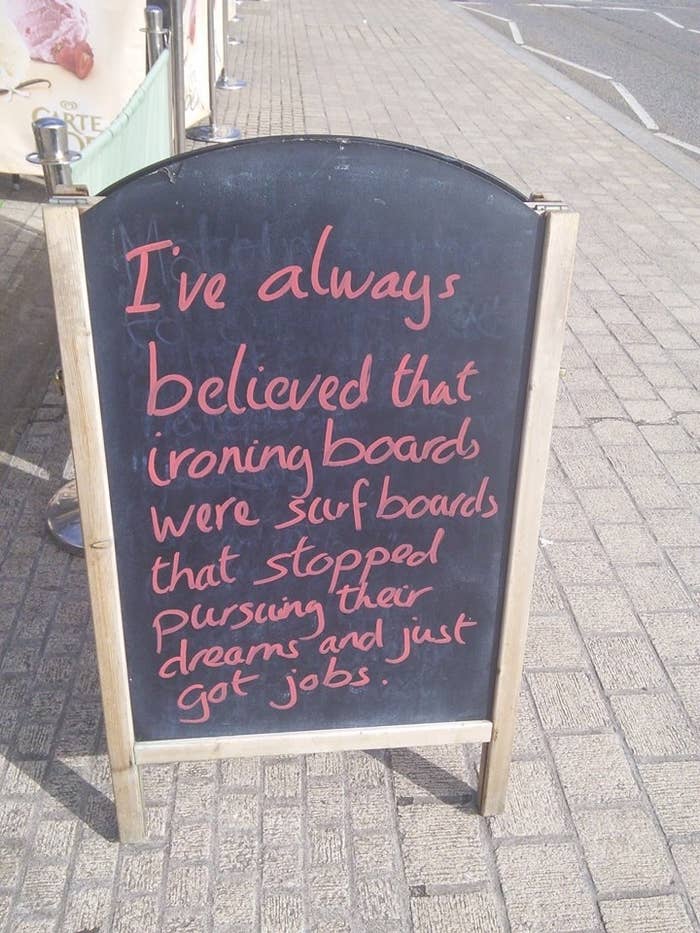 CARTE
I've always
believed that
ironing boards
were surf boards
that stopped
pursuing their
dreams and just
got jobs.